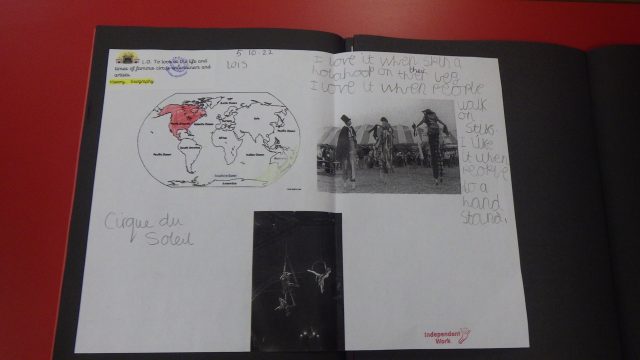 5.10.22
L.O. To look at the life and
times of famous circus entertainers and
artists.
History Geography
2013
Arctic Ocean
North America
Atlantic Ocean
Europe
Asia
Pacific Ocean
Africa
Pacific Ocean
South America
Indian Ocean
Southern Ocean
Antarctica
Cirque du
Soleil
I love it when
holahoop on their leg
I love it when people
walk
on
stilts.
I like
it when
people
do a
hand
stand.
Independent
Work